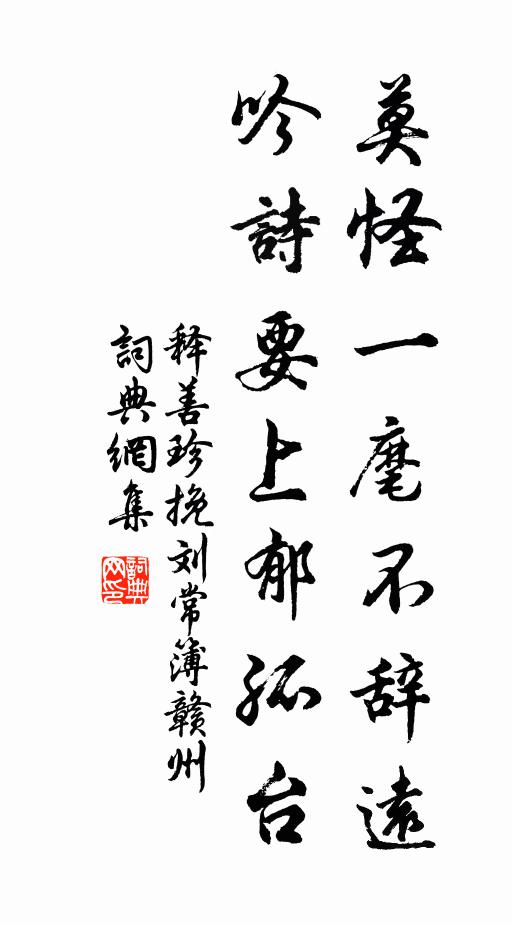 莫怪一麾不辞遠
吟詩要上郁孤台
释善珍挽刘常簿赣州
詞典網集
詞典网印